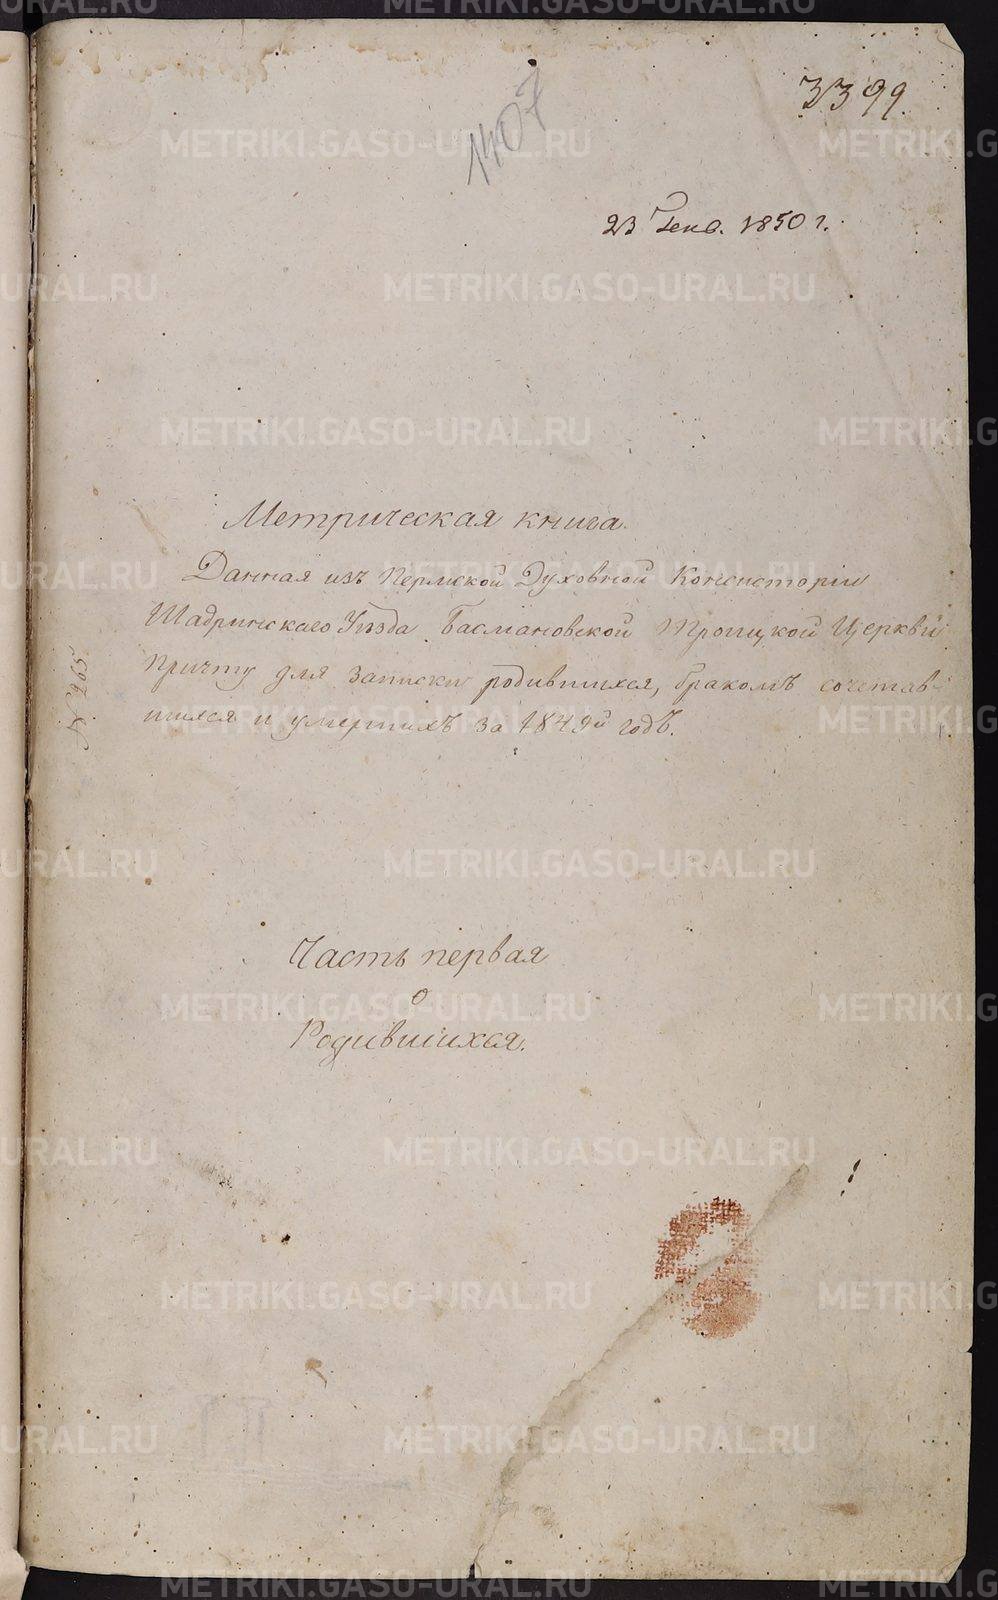 3399.
1407
23 Генв. 1850 г.
Метрическая книга.
Данная изъ Пермской Духовной Консисторіи
Шадринскаго Уѣзда Басмановской Троицкой Церкви
причту для записки родившихся, бракомъ сочетав-
шихся и умершихъ за 1849й годъ.
№ 265
Часть первая
о
Родившихся.
METRIKI.GASO-URAL.RU